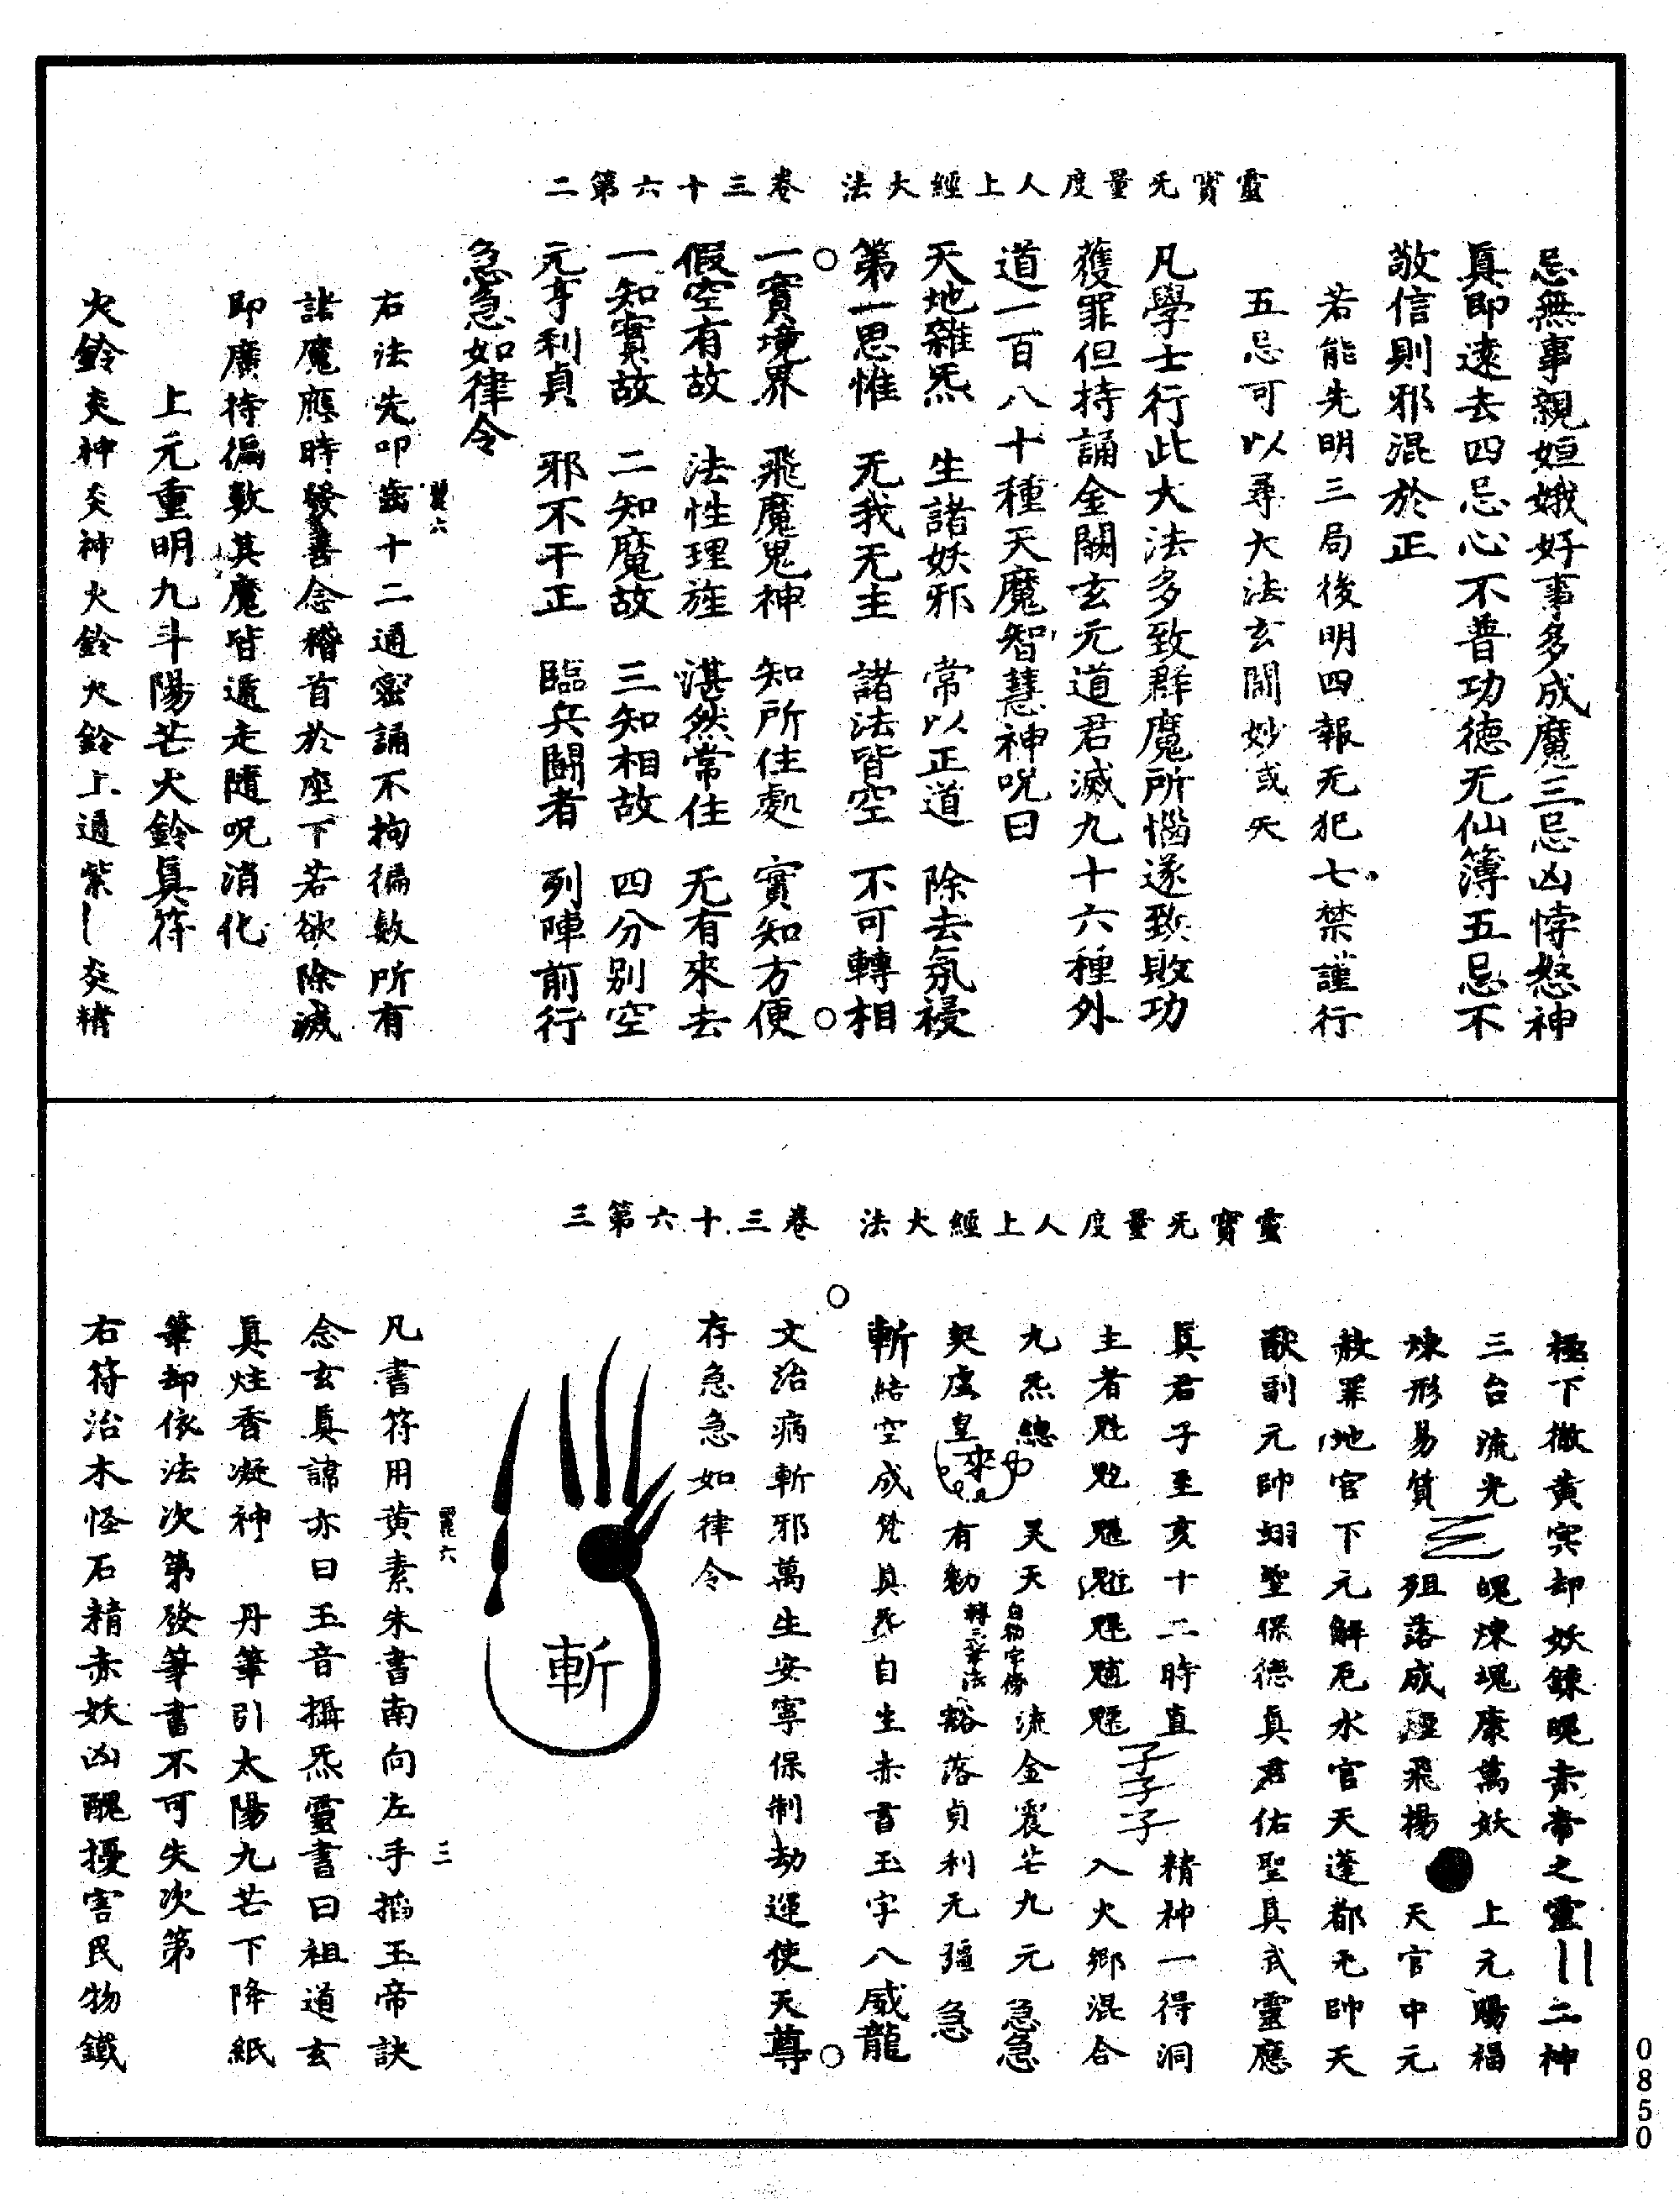 靈寶无量度人上經大法 卷三十六第二
忌無事親姮娥好事多成魔三忌凶悖怒神
真即遠去四忌心不普功德无仙簿五忌不
敬信則邪混於正
若能先明三局後明四報无犯七禁謹行
五忌可以尋大法玄關妙或天
凡學士行此大法多致群魔所惱遂致敗功
獲罪但持誦金闕玄元道君滅九十六種外
道一百八十種天魔智慧神呪曰
天地雜炁 生諸妖邪 常以正道 除去氛祲
第一思惟 无我无主 諸法皆空 不可轉相
一實境界 飛魔鬼神 知所住處 實知方便
假空有故 法性理旌 湛然常住 无有來去
一知實故 二知魔故 三知相故 四分别空
元亨利貞 邪不干正 臨兵鬭者 列陣前行
急急如律令
右法先叩齒十二通密誦不拘徧數所有
諸魔應時發善念稽首於座下若欲除滅
即廣持徧數其魔皆遁走隨呪消化
上元重明九斗陽芒火鈴真符
火鈴炎神炎神火鈴火鈴上通紫丨炎精
靈寶无量度人上經大法 卷三十六第三
極下徹黄㝠却妖鍊魄赤帝之靈 二神
三台流光 魄煉魂康萬妖 上元賜福
煉形易質 殂落威 飛揚 天官中元
赦罪地官下元解厄水官天蓬都元帥天
猷副元帥翊聖保德真君佑聖真武靈應
真君子至亥十二時直 子子子 精神一得洞
主者 入火鄉混合
九炁總 昊天 白勑字傍 流金震芒九元 急急
契虚皇 來 有勑 轉三筆法 豁落貞利无疆 急
斬結空成梵真炁自生赤書玉字八威龍
文治病斬邪萬生安寧保制劫運使天尊
存急急如律令
斬
凡書符用黄素朱書南向左手搯玉帝訣
念玄真諱亦曰玉音攝炁靈書曰祖道玄
真炷香凝神 丹筆引太陽九芒下降紙
筆却依法次第發筆書不可失次第
右符治木怪石精赤妖凶醜擾害民物鐵
三
0850